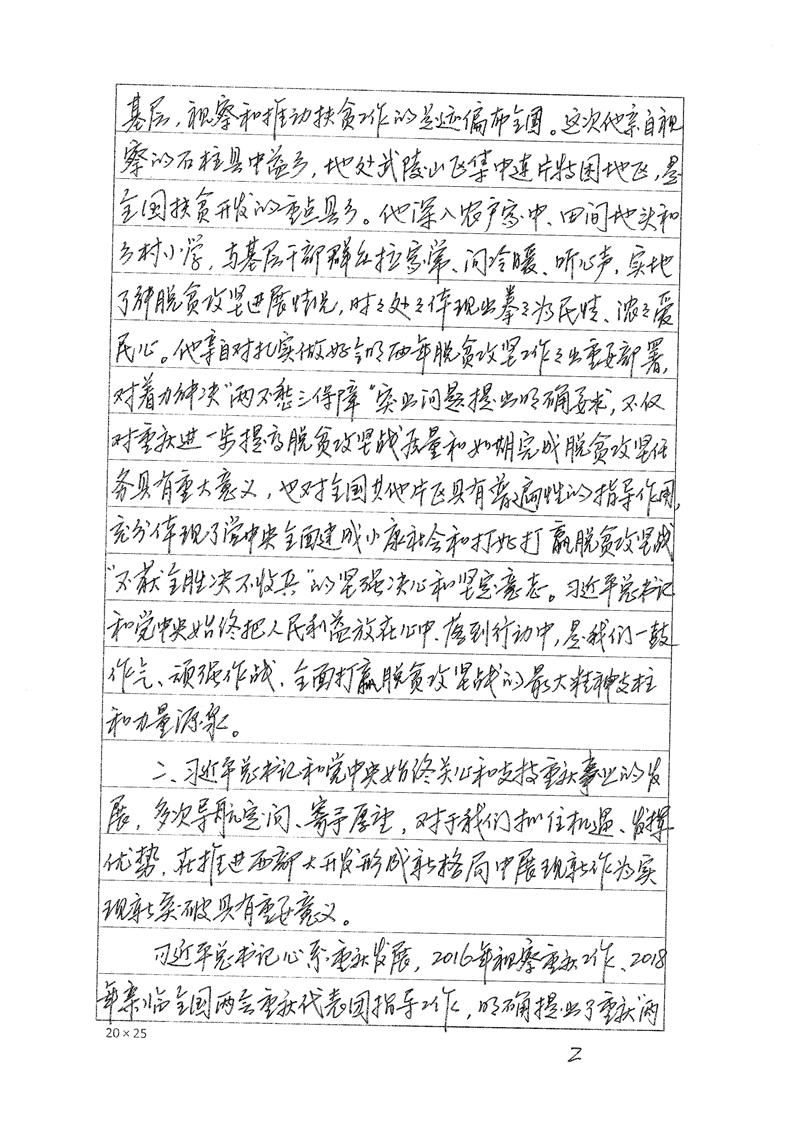 基层,视察和推动扶贫工作的足迹偏布全国。这次他亲自视
察的石柱县中益乡,地处武陵山区集中连片特困地区,是
全国扶贫开发的重点县乡。他深入农户家中、田间地头和
乡村小学,与基层干部群众拉家常、问冷暖、听心声,实地
了解脱贫攻坚进展情况,时时处处体现出拳拳为民情、浓浓爱
民心。他亲自对扎实做好今明两年脱贫攻坚工作作出重要部署,
对着力解决“两不愁三保障”突出问题提出明确要求,不仅
对重庆进一步提高脱贫攻坚战质量和如期完成脱贫攻坚任
务具有重大意义,也对全国其他片区具有普遍性的指导作用,
充分体现了党中央全面建成小康社会和打好打赢脱贫攻坚战
“不获全胜决不收兵”的坚强决心和坚定意志。习近平总书记
和党中央始终把人民利益放在心中、落到行动中,是我们一鼓
作气、顽强作战、全面打赢脱贫攻坚战的最大精神支柱
和力量源泉。
二、习近平总书记和党中央始终关心和支持重庆事业的发
展,多次导航定向、寄予厚望,对于我们抓住机遇、发挥
优势,在推进西部大开发形成新格局中展现新作为实
现新突破具有重要意义。
习近平总书记心系重庆发展,2016年视察重庆工作、2018
年亲临全国两会重庆代表团指导工作,明确提出了重庆“两
20×25
2